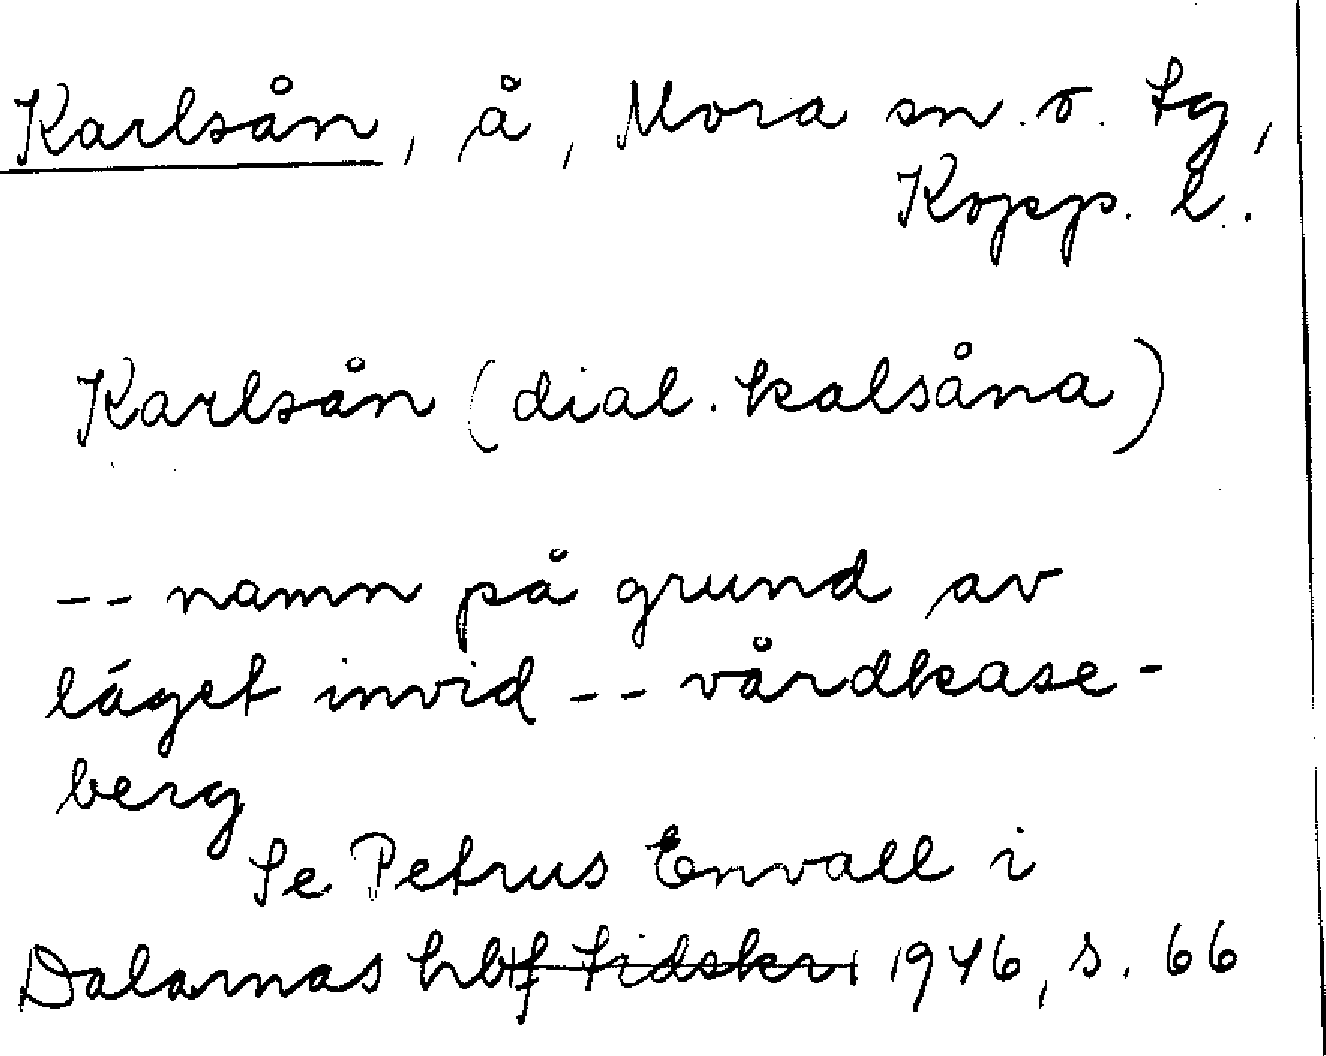 Karlsån, å, Mora sn. o. tg,
Kopp. l.
Karlsån (dial. kalsåna)
-- namn på grund av
läget invid -- vårdkase-
berg
Se Petrus Envall i
Dalarnas hbf tidskr 1946, s. 66